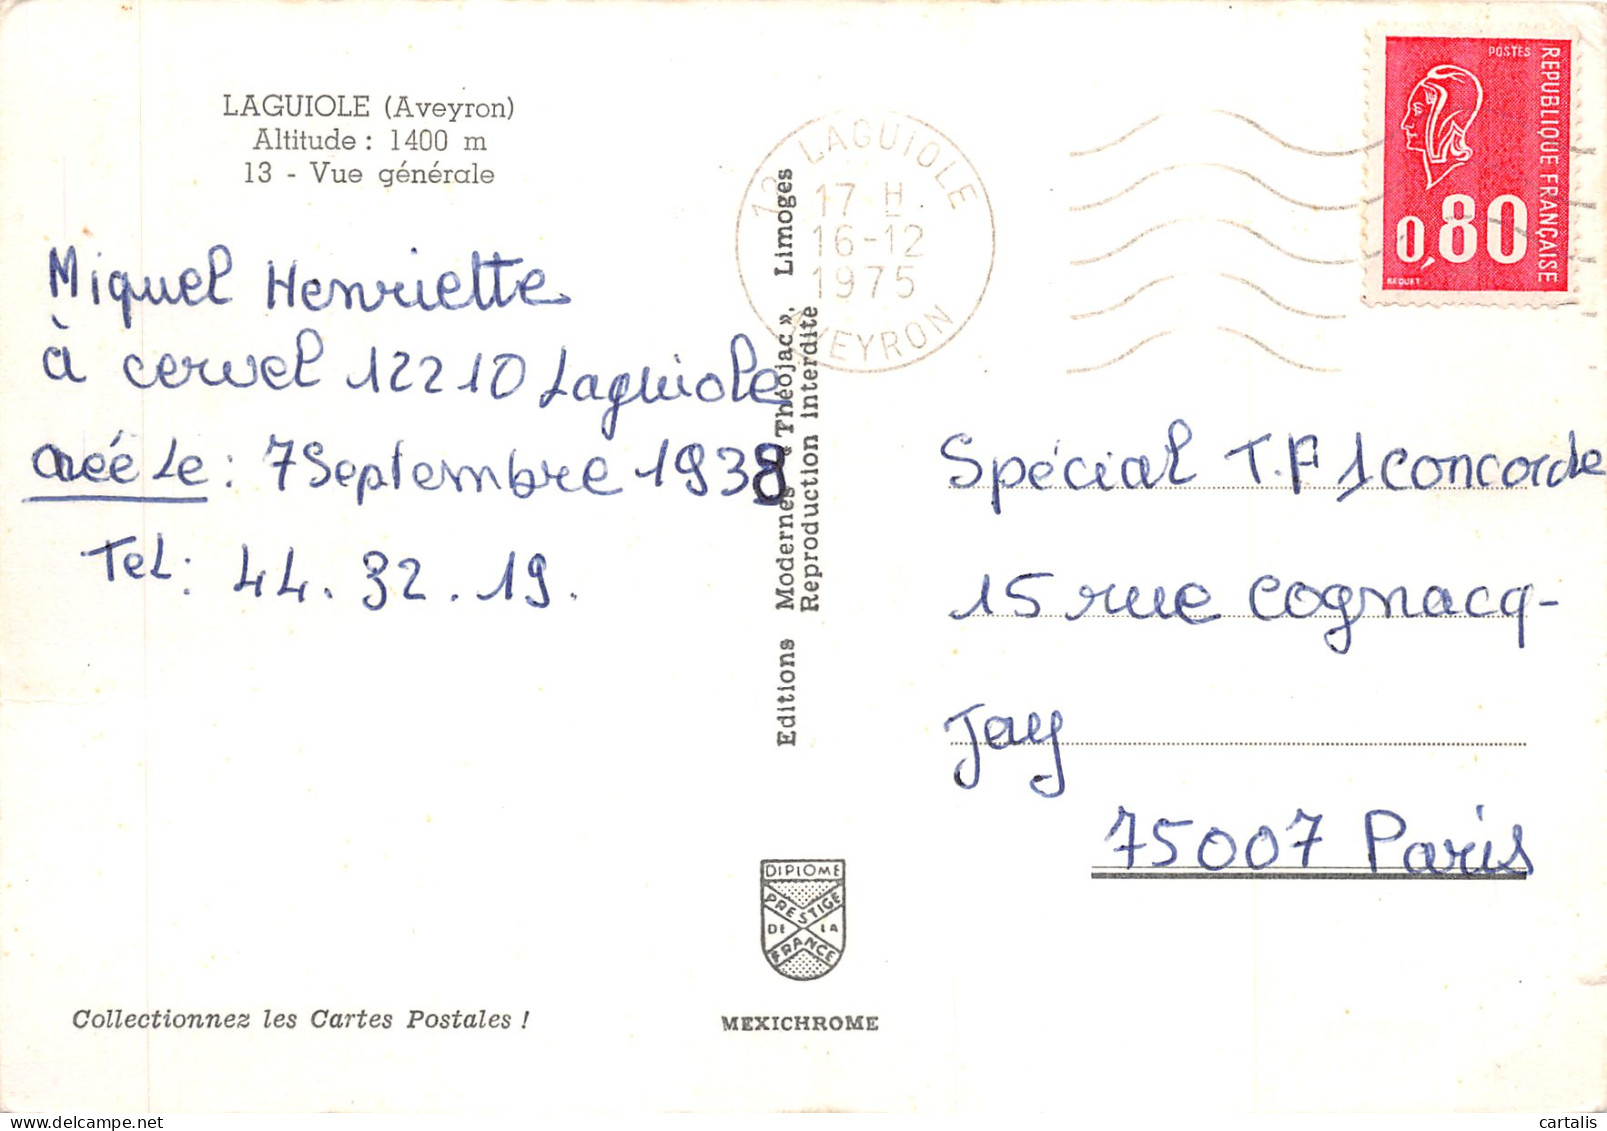 LAGUIOLE (Aveyron)
Altitude : 1400 m
13 - Vue générale
Miquel Henriette
à cervel 12210 Laguiole
née Le : 7 Septembre 1938
Tel : 44.32.19.
Collectionnez les Cartes Postales !
Editions Modernes « Théojac », Limoges
Reproduction interdite
DIPLOME
PRESTIGE
DE LA
FRANCE
MEXICHROME
12 LAGUIOLE
17 H
16-12
1975
AVEYRON
POSTES
REPUBLIQUE FRANÇAISE
0,80
BEQUET
Spécial T.F 1 concorde
15 rue Cognacq-
Jay
75007 Paris
cartalis